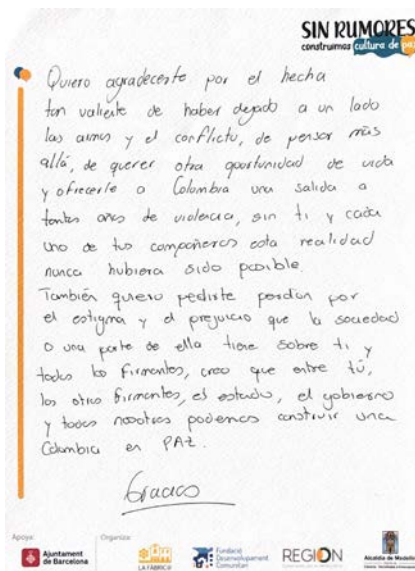 SIN RUMORES
construimos cultura de paz
Quiero agradecerte por el hecho
tan valiente de haber dejado a un lado
las armas y el conflicto, de pensar más
allá, de querer otra oportunidad de vida
y ofrecerle a Colombia una salida a
tantos años de violencia, sin ti y cada
uno de tus compañeros esta realidad
nunca hubiera sido posible.
También quiero pedirte perdón por
el estigma y el prejuicio que la sociedad
o una parte de ella tiene sobre ti y
todos los firmantes, creo que entre tú,
los otros firmantes, el estado, el gobierno
y todos nosotros podemos construir una
Colombia en PAZ.
Gracias
Apoya:
Organiza:
Ajuntament
de Barcelona
LA FÀBRICA
Fundació
Desenvolupament
Comunitari
REGIÓN
Alcaldía de Medellín